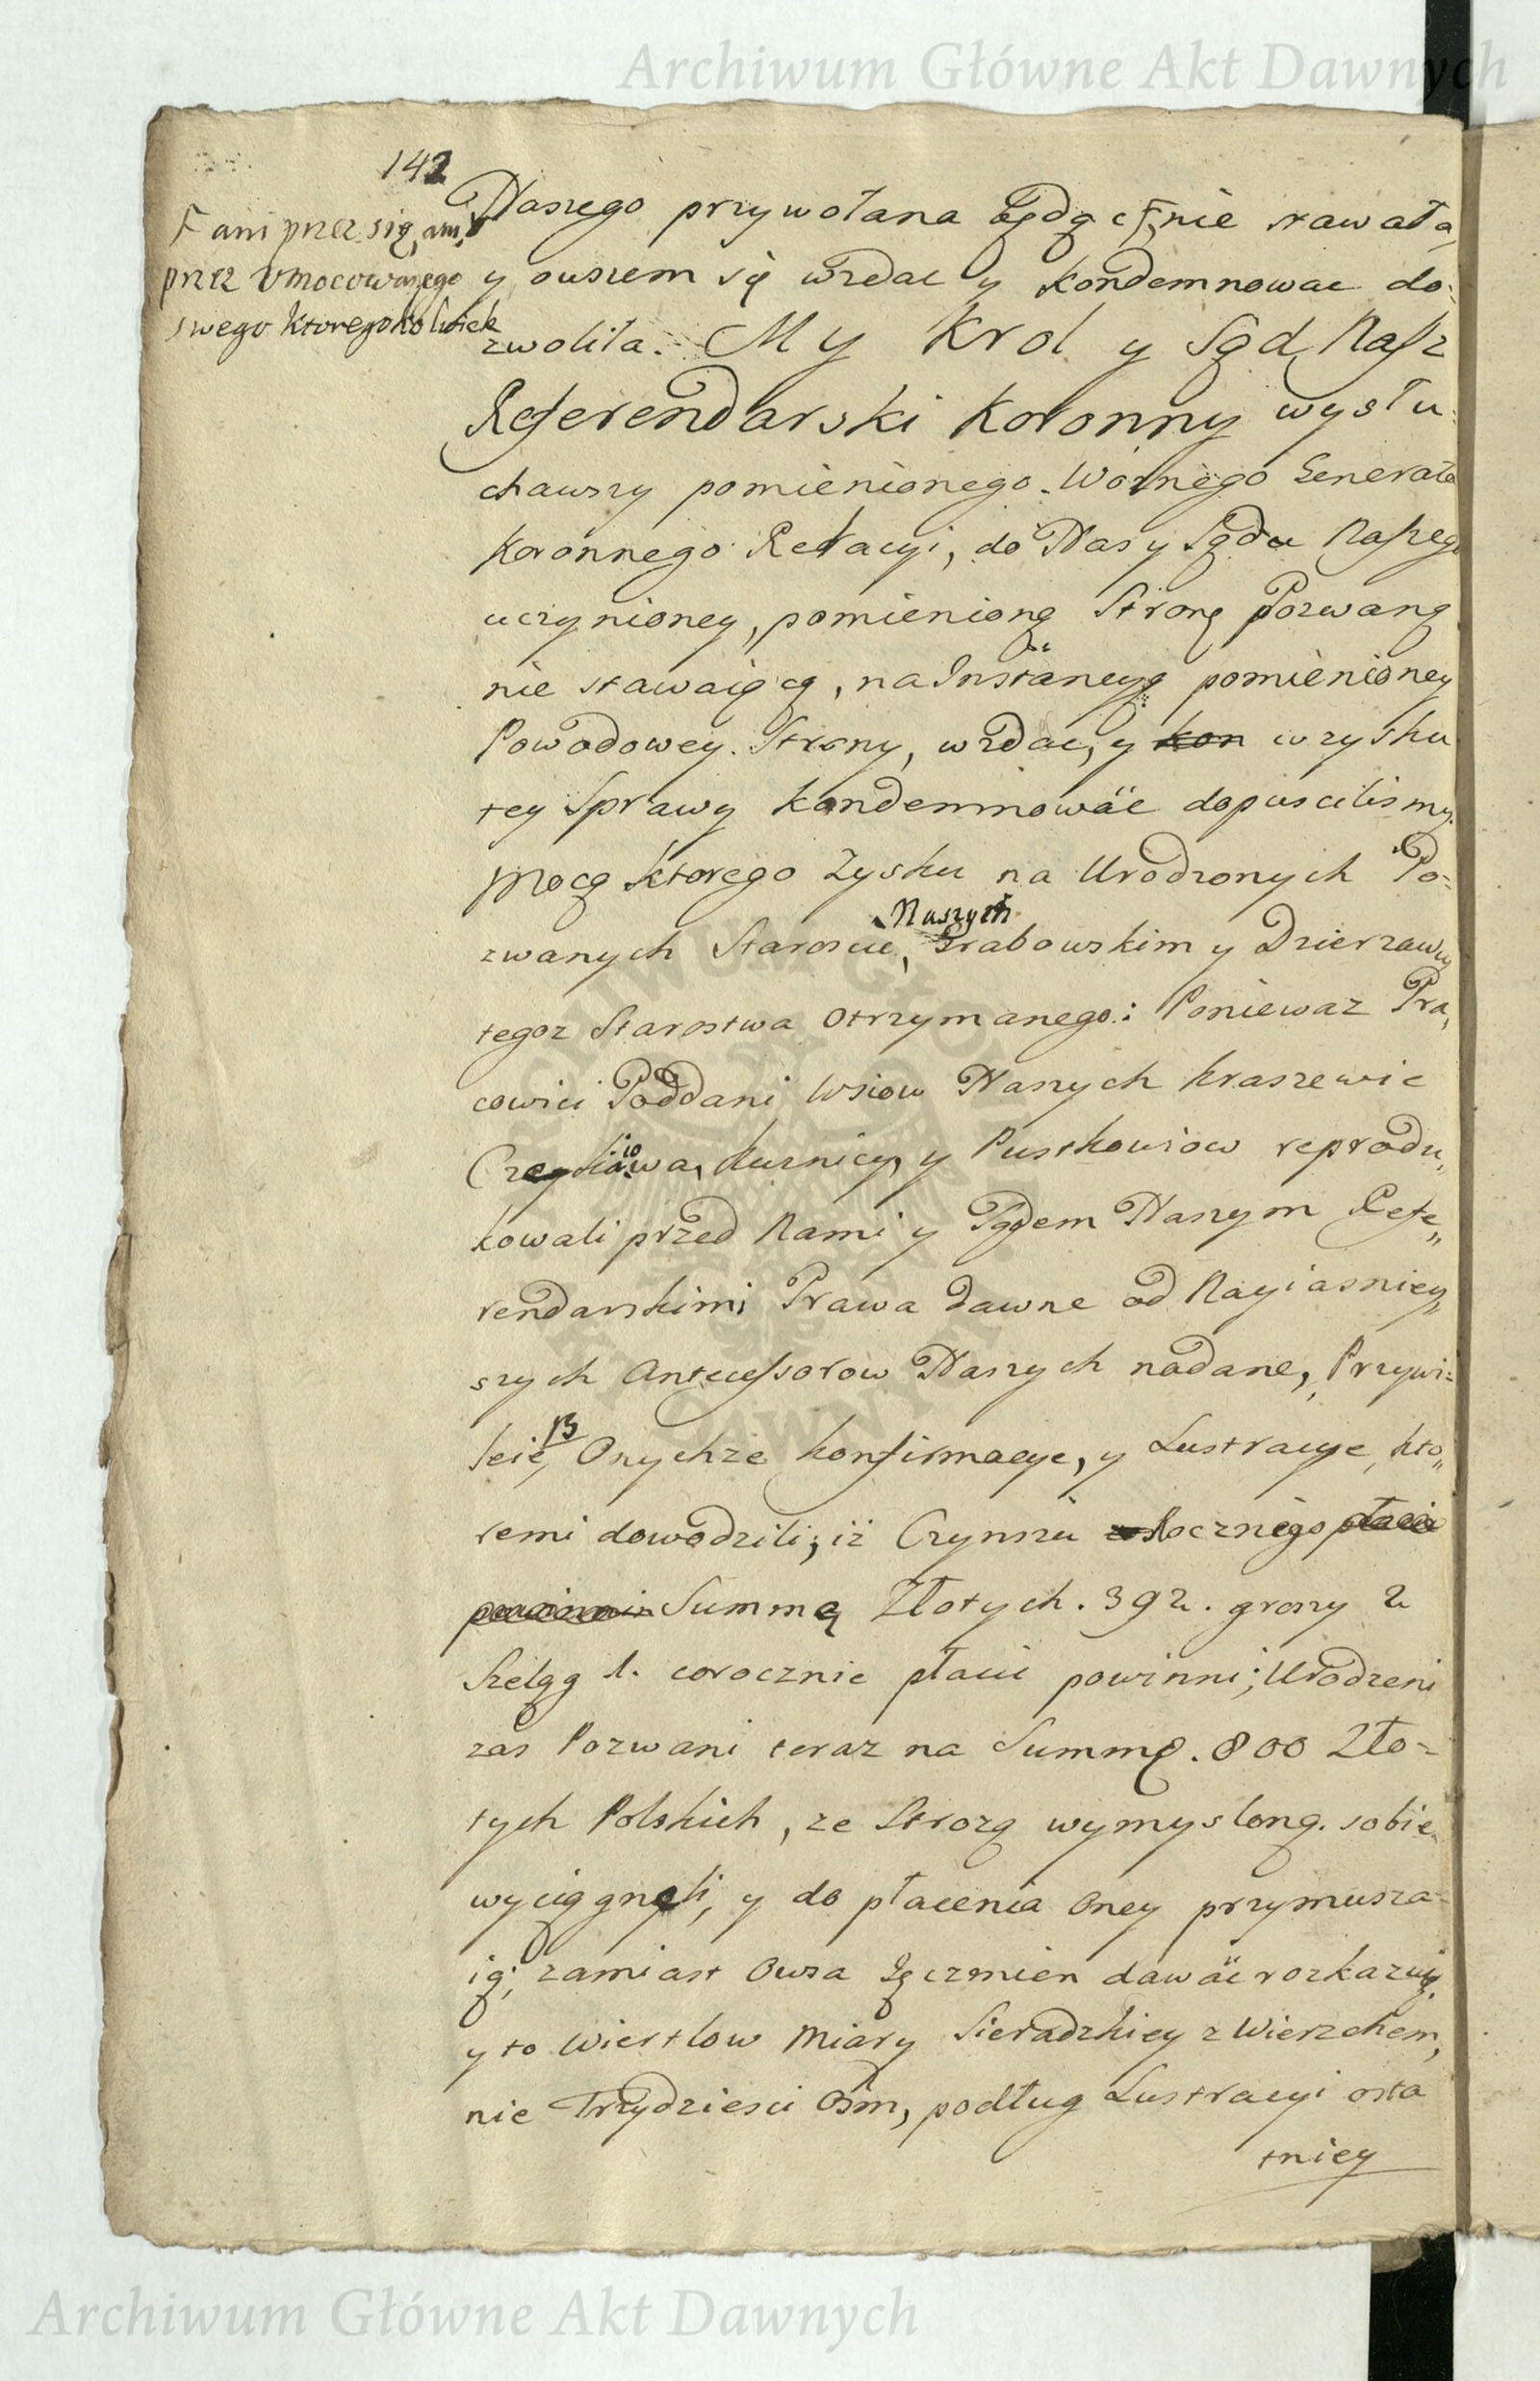 Archiwum Główne Akt Dawnych
142
F ani przez się, ani
przez Umocowanego
swego ktoregokolwiek
Naszego przywołana będąc F nie stawała,
y owszem się wzdac y kondemnowac do-
zwoliła. My Krol y Sąd Nasz
Referendarski Koronny wysłu-
chawszy pomienionego Woznego Generała
Koronnego Relacyi, do Nas y Sądu Naszego
uczynioney, pomienioną Stronę Pozwaną
nie stawaiącą, na Instancyą pomienioney
Powodowey Strony, wzdac, y kon w zysku
tey Sprawy kondemnowac dopuscilismy.
Mocą ktorego Zysku na Urodzonych Po-
Naszych
zwanych Staroscie, Grabowskim y Dzierzawcy
tegoz Starostwa otrzymanego: Poniewaz Pra-
cowici Poddani Wsiow Naszych Kraszewic
Czaykowa, Kuznicy, y Pustkowiow reprodu-
kowali przed Nami y Sądem Naszym Refe-
rendarskimi Prawa dawne od Nayiasniey-
szych Antecessorow Naszych nadane, Przywi-
leie, Onychze konfirmacye, y Lustracye, kto-
remi dowodzili, iż Czynszu rocznego płacic
powinni Summę Złotych. 392. groszy 2
Szeląg 1. corocznie płacic powinni; Urodzeni
zas Pozwani teraz na Summę. 800 Zło-
tych Polskich, ze Strozą wymysloną sobie
wyciągnęli, y do płacenia Oney przymusza-
ią; zamiast Owsa Jęczmien dawac rozkazuią,
y to Wiertlow Miary Sieradzkiey z Wierzchem,
nie Trzydziesci Osm, podług Lustracyi osta
tniey
Archiwum Główne Akt Dawnych